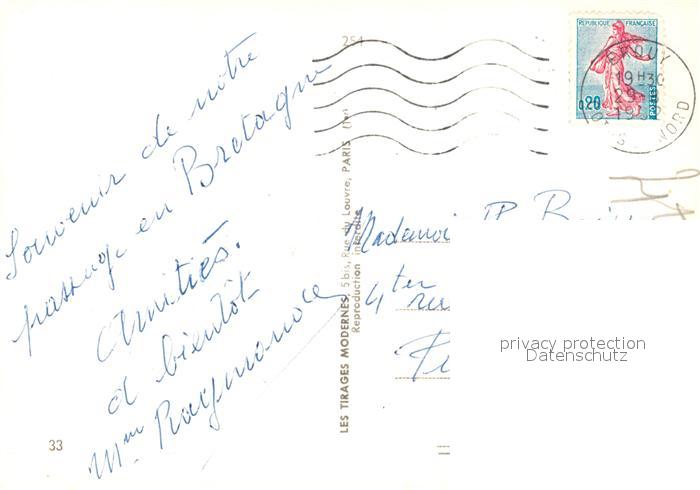 Souvenir de notre
passage en Bretagne
Amitiés.
à bientôt
Mme Raymonde
33
254
LES TIRAGES MODERNES, 5 bis, Rue du Louvre, PARIS (1er)
Reproduction interdite
REPUBLIQUE FRANÇAISE
0,20
POSTES
19H30
NORD
Mademoi
4ter rue
privacy protection
Datenschutz